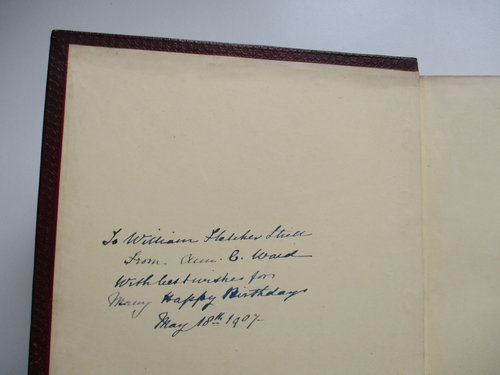 To William Fletcher
From C. Waid
With best wishes for
Many Happy Birthdays
May 18th 1907